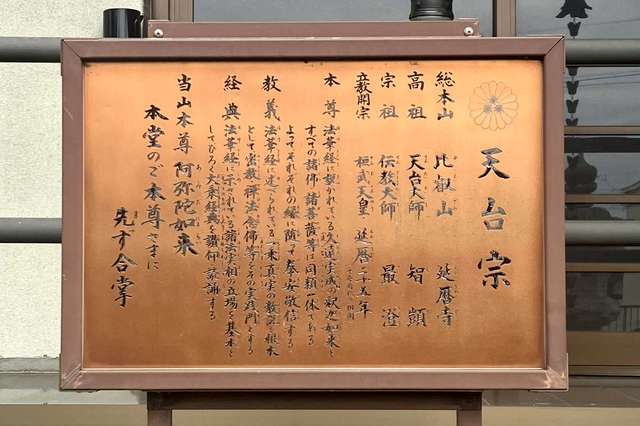 天台宗
総本山 比叡山 延暦寺
高祖 天台大師 智顗
宗祖 伝教大師 最澄
立教開宗 桓武天皇 延暦二十五年
本尊 法華経に説かれている久遠実成の釈迦如来と
すべての諸佛諸菩薩等は同類一体である
よってそれぞれの縁に随って奉安敬信する
教義 法華経に述べられている一乗真実の教旨を根本
として密教禅法念佛等をその実践門とする
経典 法華経に示されている諸法実相の立場を基本と
してひろく大乗経典を讃仰読誦する
当山本尊 阿弥陀如来
あみだにょらい
本堂のご本尊さまに
先ず合掌